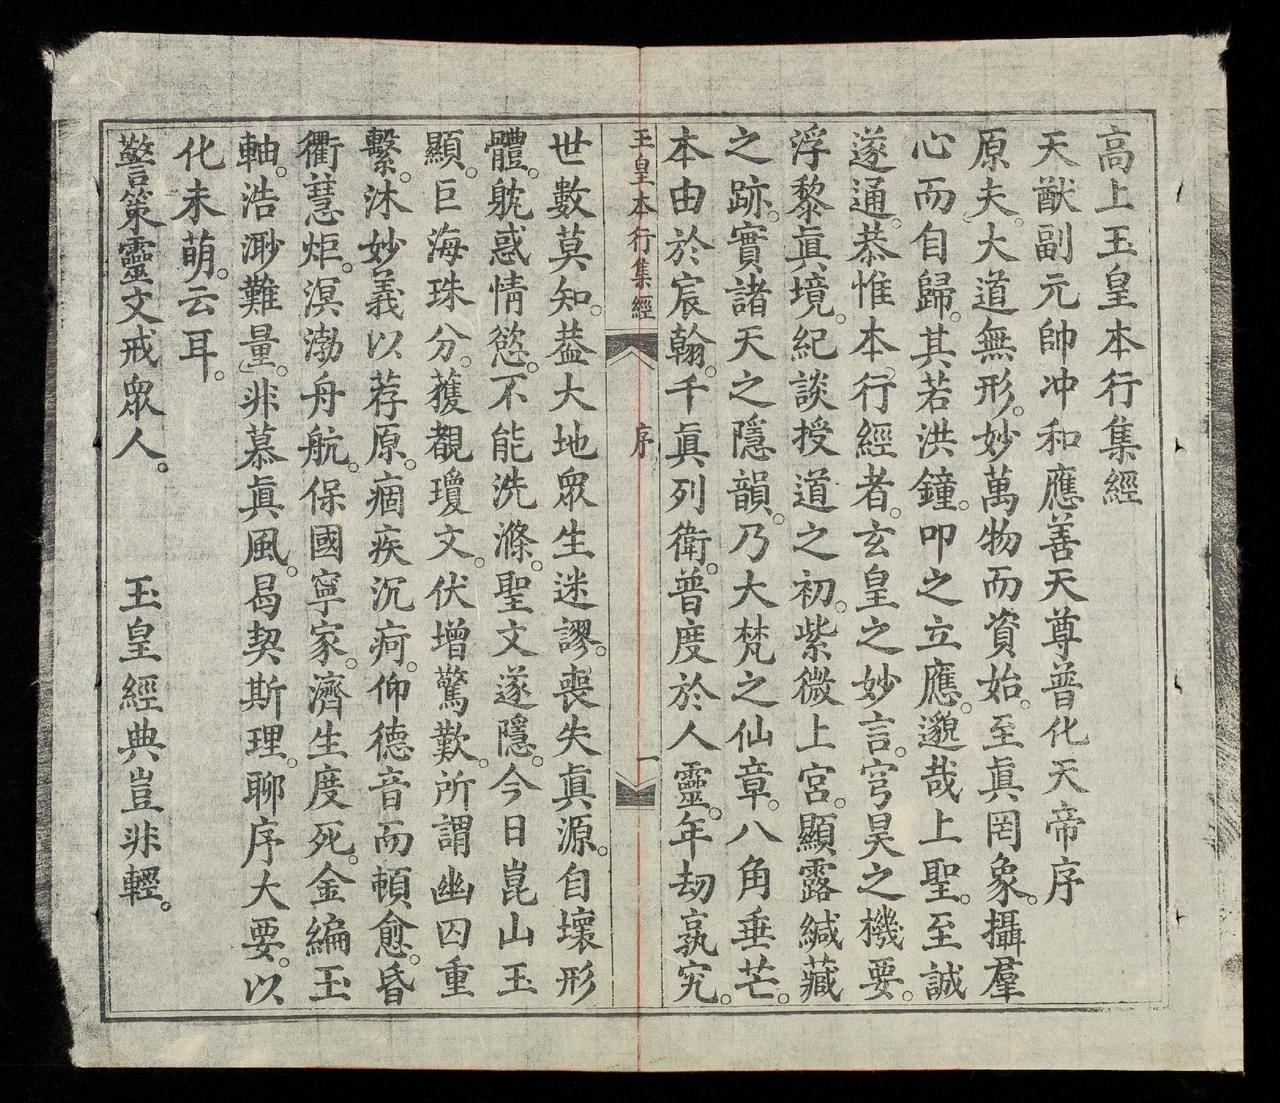 高上玉皇本行集經
天猷副元帥冲和應善天尊普化天帝序
原夫。大道無形。妙萬物而資始。至眞罔象。攝羣
心而自歸。其若洪鐘。叩之立應。邈哉上聖。至誠
遂通。恭惟本行經者。玄皇之妙言。穹昊之機要。
浮黎眞境。紀談授道之初。紫微上宮。顯露緘藏
之跡。實諸天之隱韻。乃大梵之仙章。八角垂芒。
本由於宸翰。千眞列衛。普度於人靈。年劫孰究。
玉皇本行集經 序 一
世數莫知。葢大地眾生迷謬。喪失眞源。自壞形
體。躭惑情慾。不能洗滌。聖文遂隱。今日崑山玉
顯。巨海珠分。獲覩瓊文。伏增驚歎。所謂幽囚重
繫。沐妙義以荐原。痼疾沉疴。仰德音而頓愈。昏
衢慧炬。溟渤舟航。保國寧家。濟生度死。金編玉
軸。浩渺難量。非慕眞風。曷契斯理。聊序大要。以
化未萌。云耳。
警策靈文戒眾人。 玉皇經典豈非輕。